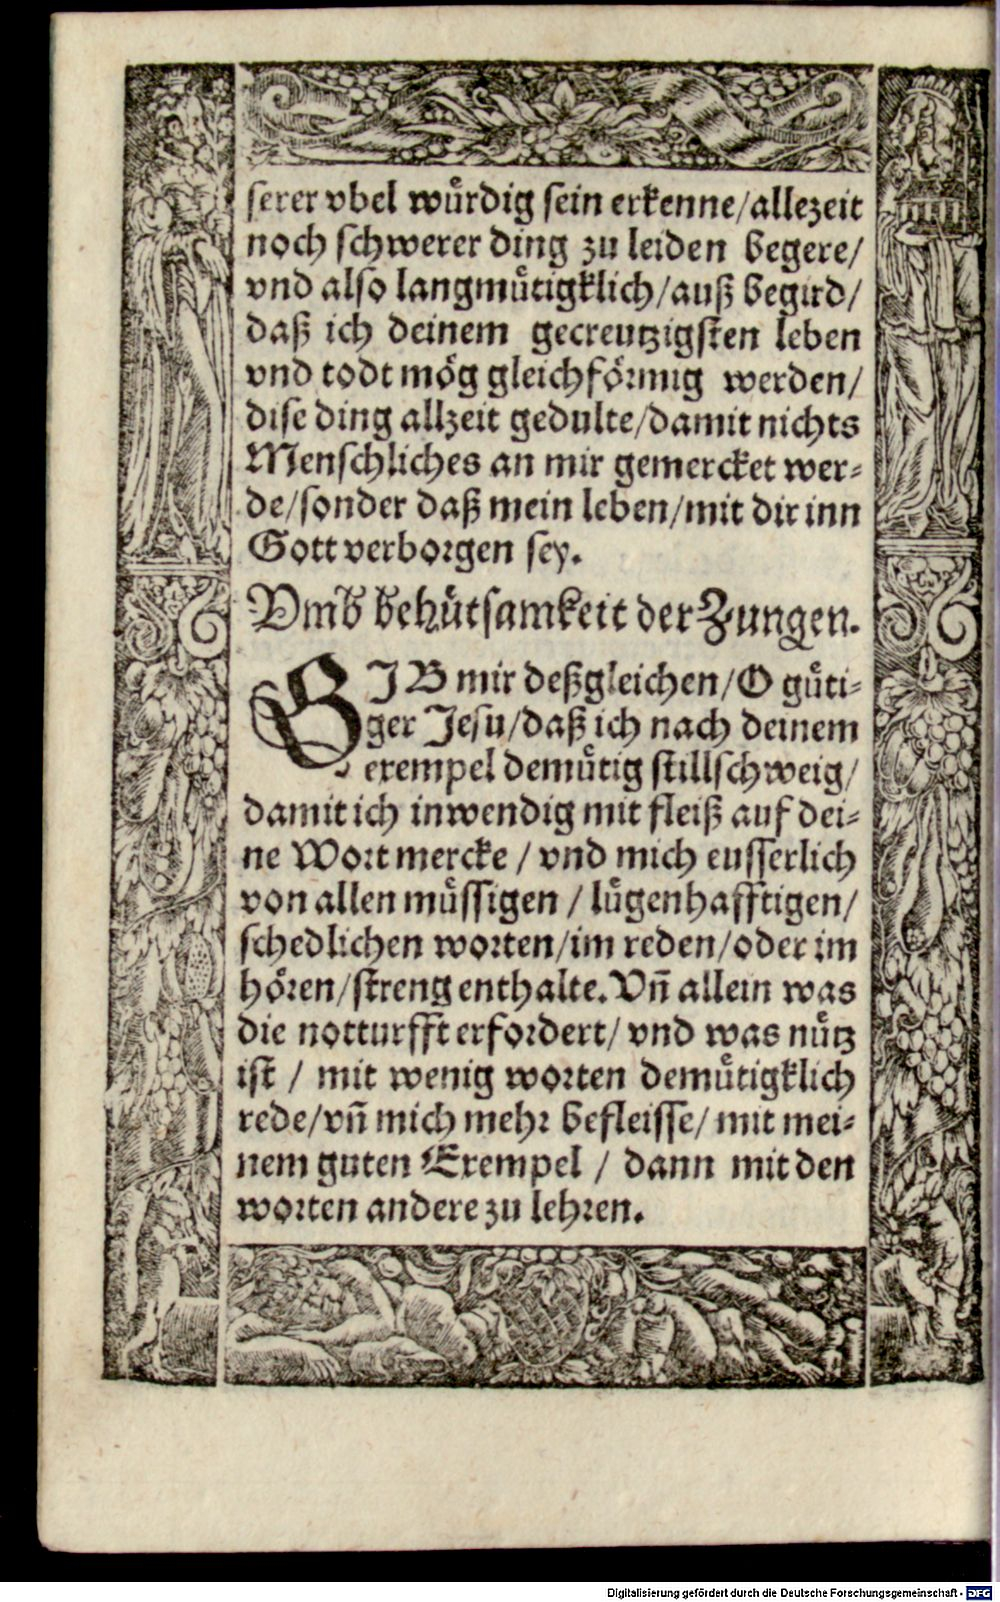 serer vbel wuͤrdig sein erkenne/allezeit
noch schwerer ding zu leiden begere/
vnd also langmuͤtigklich/auß begird/
daß ich deinem gecreutzigsten leben
vnd todt moͤg gleichfoͤrmig werden/
dise ding allzeit gedulte/damit nichts
Menschliches an mir gemercket wer⸗
de/sonder daß mein leben/mit dir inn
Gott verborgen sey.
Vmb behuͤtsamkeit der Zungen.
GIB mir deßgleichen/O guͤti⸗
ger Jesu/daß ich nach deinem
exempel demuͤtig stillschweig/
damit ich inwendig mit fleiß auf dei⸗
ne Wort mercke / vnd mich eusserlich
von allen muͤssigen / luͤgenhafftigen/
schedlichen worten/im reden/oder im
hoͤren/streng enthalte. Vn̄ allein was
die notturfft erfordert/ vnd was nuͤtz
ist / mit wenig worten demuͤtigklich
rede/vn̄ mich mehr befleisse/ mit mei⸗
nem guten Exempel / dann mit den
worten andere zu lehren.
Digitalisierung gefördert durch die Deutsche Forschungsgemeinschaft - DFG